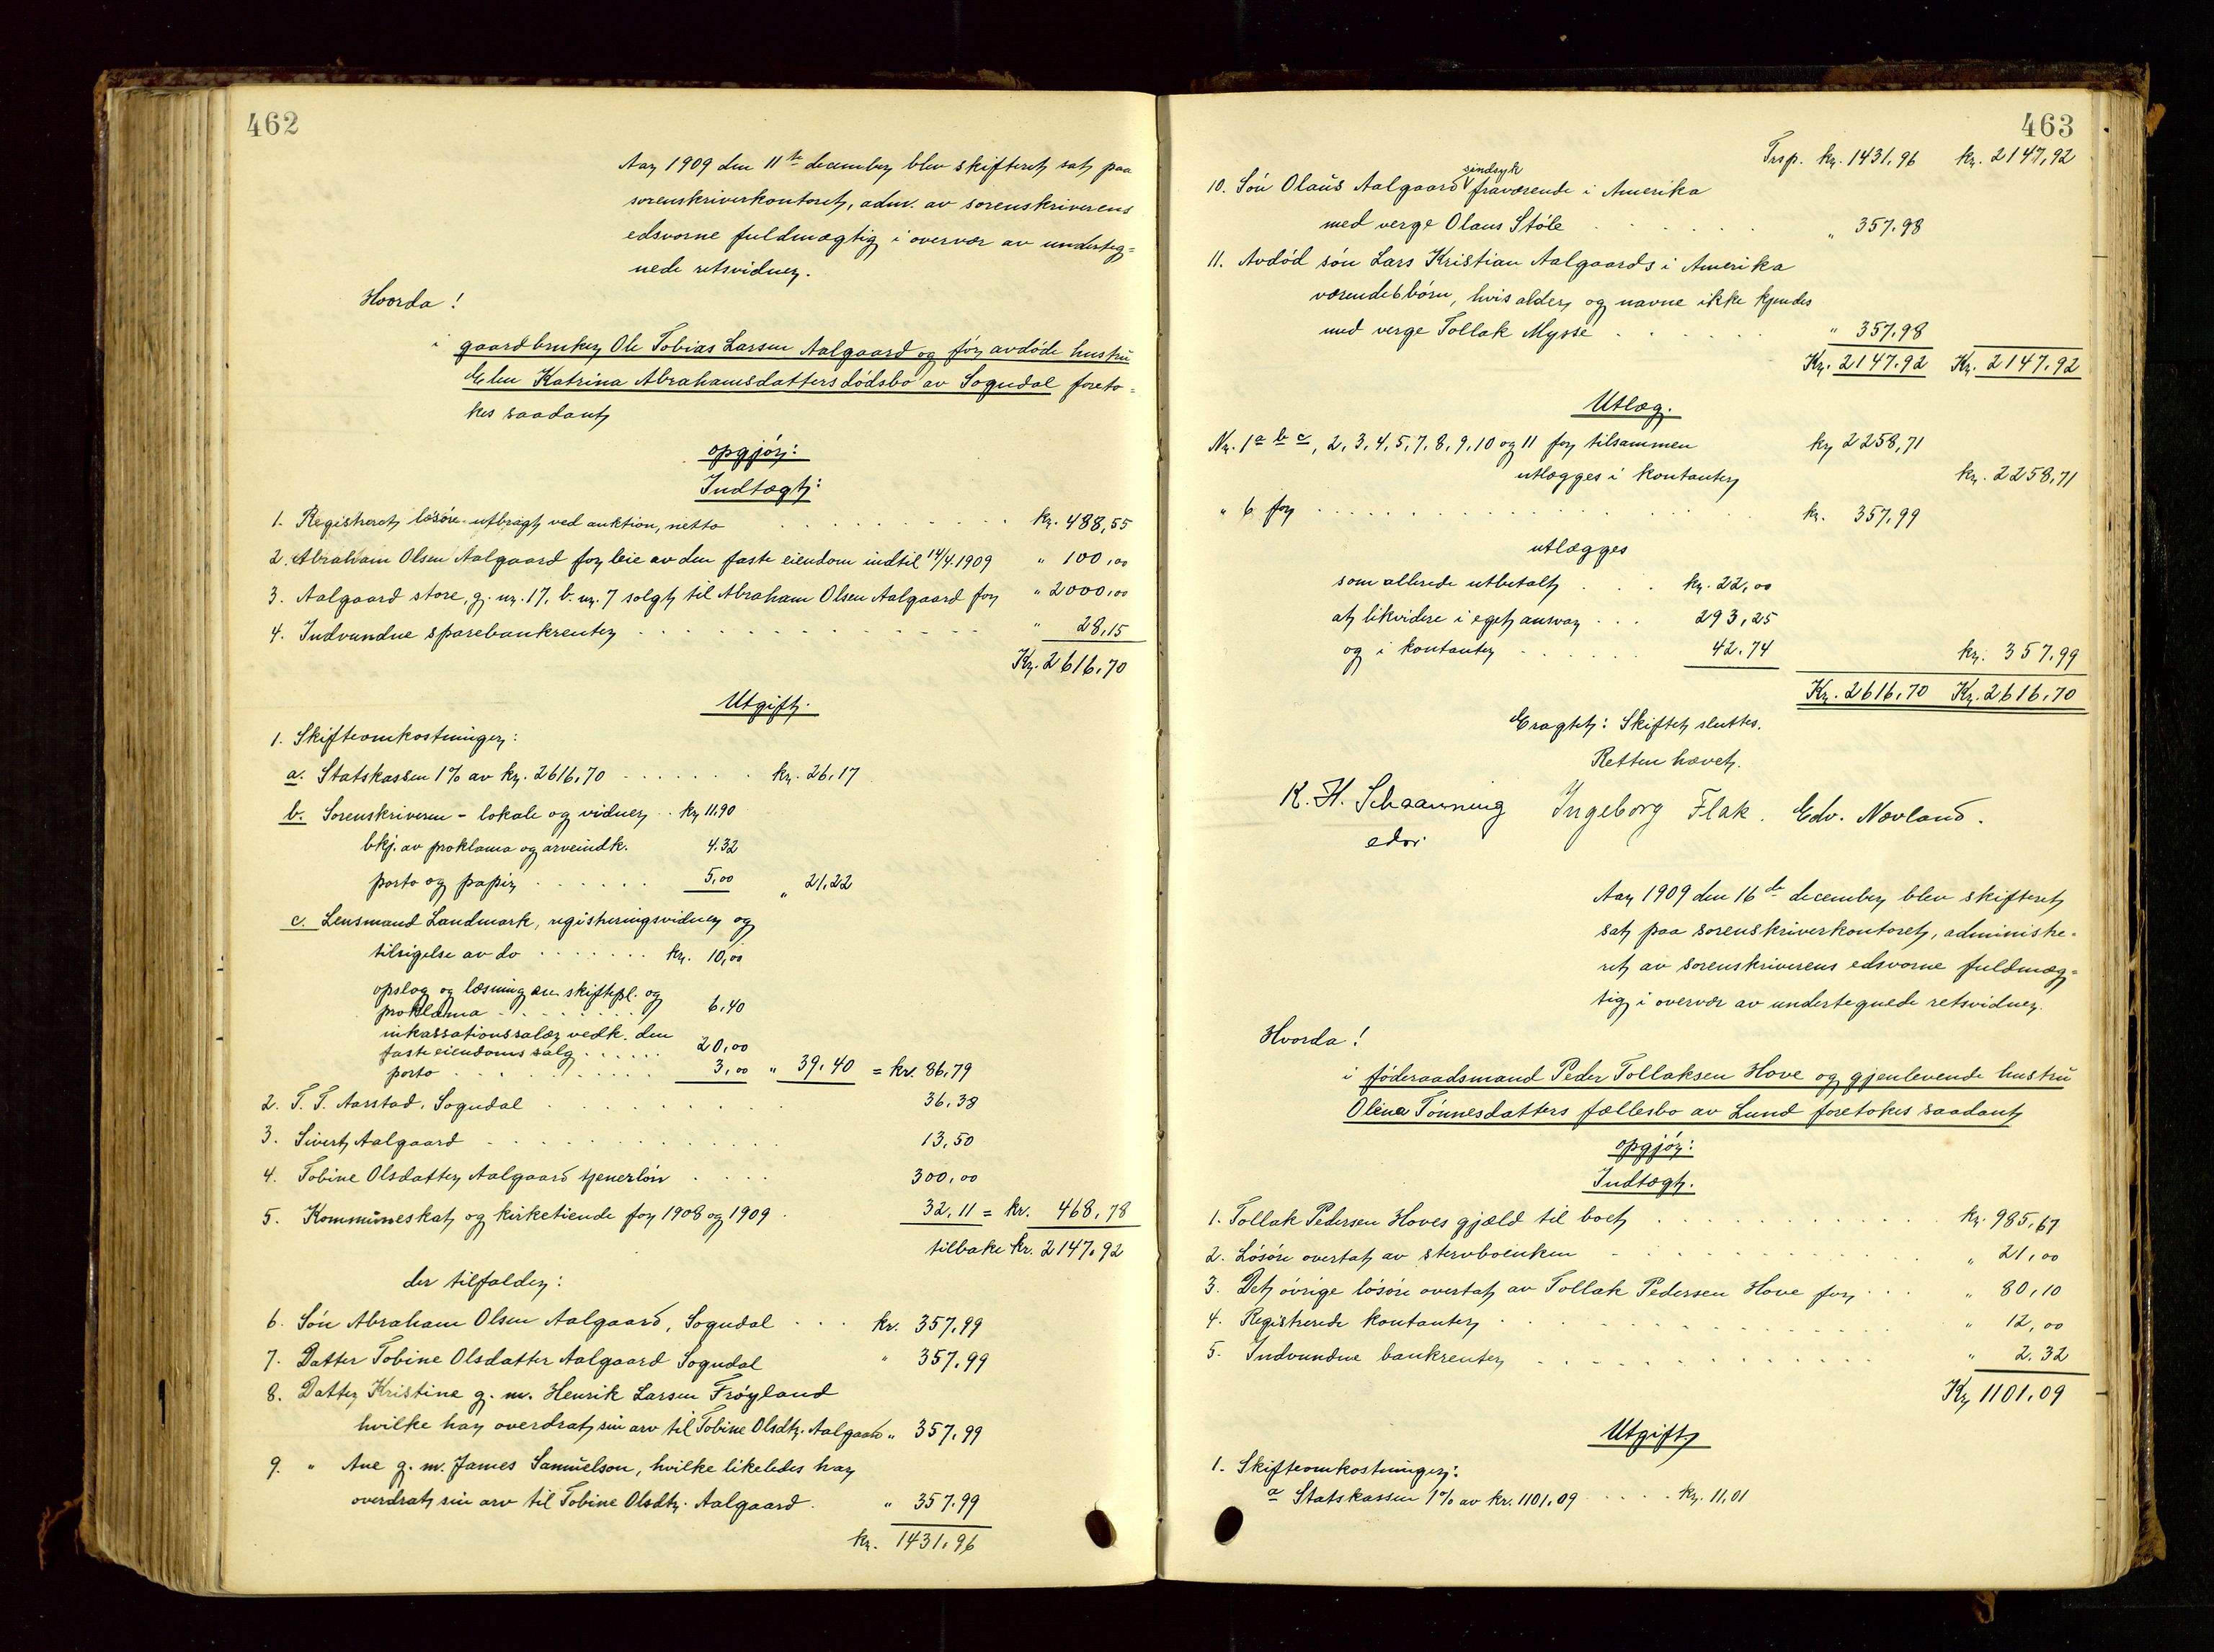 462
Aar 1909 den 11te december blev skifteret sat paa
sorenskriverkontoret, adm. av sorenskriverens
edsvorne fuldmægtig i overvær av underteg=
nede retsvidner.
Hvorda!
i gaardbruker Ole Tobias Larsen Aalgaard og før avdøde hustru
Elen Katrina Abrahamsdatters dødsbo av Sogndal foreto=
kes saadant
opgjør:
Indtægt:
1. Registreret løsøre utbragt ved auktion, netto . . . kr. 488,55
2. Abraham Olsen Aalgaard for leie av den faste eiendom indtil 14/4 1909 " 100,00
3. Aalgaard store, g. nr. 17, b. nr. 7 solgt til Abraham Olsen Aalgaard for " 2000,00
4. Indvundne sparebankrenter . . . " 28,15
Kr. 2616,70
Utgift.
1. Skifteomkostninger:
a. Statskassen 1% av kr. 2616,70 . . . kr. 26,17
b. Sorenskriveren - lokale og vidner . . kr 11,90
bkj. av proklama og arveindk. 4,32
porto og papir . . . 5,00 " 21,22
c. Lensmand Landmark, registreringsvidner og
tilsigelse av do . . . kr. 10,00
opslag og læsning av skiftepl. og
proklama . . . 6,40
inkassationssalær vedk. den
faste eiendoms salg . . . 20,00
porto . . . 3,00 " 39,40 = kr. 86,79
2. T. T. Aarstad, Sogndal . . . 36,38
3. Sivert Aalgaard . . . 13,50
4. Tobine Olsdatter Aalgaard tjenerløn . . . 300,00
5. Kommuneskat og kirketiende for 1908 og 1909 . 32,11 = kr. 468,78
tilbake kr. 2147,92
der tilfalder:
6. Søn Abraham Olsen Aalgaard, Sogndal . . . kr. 357,99
7. Datter Tobine Olsdatter Aalgaard Sogndal " 357,99
8. Datter Kristine g. m. Henrik Larsen Frøyland
hvilke har overdrat sin arv til Tobine Olsdtr. Aalgaard " 357,99
9. " Ane g. m. James Samuelson, hvilke likeledes har
overdrat sin arv til Tobine Olsdtr. Aalgaard . " 357,99
kr. 1431,96
463
Trsp. kr. 1431,96 kr. 2147,92
10. Søn Olaus Aalgaard sindsyk fraværende i Amerika
med verge Olaus Støle . . . " 357,98
11. Avdød søn Lars Kristian Aalgaards i Amerika
værende 6 børn, hvis alder og navne ikke kjendes
med verge Tollak Mysse . . . " 357,98
Kr. 2147,92 Kr. 2147,92
Utlæg.
Nr. 1 a b c, 2, 3, 4, 5, 7, 8, 9, 10 og 11 for tilsammen kr 2258,71
utlægges i kontanter kr. 2258,71
" 6 for . . . kr. 357,99
utlægges
som allerede utbetalt . . . kr. 22,00
at likvidere i eget ansvar . . . 293,25
og i kontanter . . . 42,74 kr. 357,99
Kr. 2616,70 Kr. 2616,70
Eragtet: Skiftet sluttes.
Retten hævet.
K. H. Schaanning Ingeborg Flak. Edv. Nævland.
edsv.
Aar 1909 den 16de december blev skifteret
sat paa sorenskriverkontoret, administre-
ret av sorenskriverens edsvorne fuldmæg=
tig i overvær av undertegnede retsvidner.
Hvorda!
i føderaadsmand Peder Tollaksen Hove og gjenlevende hustru
Olina Tønnesdatters fællesbo av Lund foretokes saadant
opgjør:
Indtægt.
1. Tollak Pedersen Hoves gjæld til boet . . . kr. 985,67
2. Løsøre overtat av stervboenken . . . " 21,00
3. Det øvrige løsøre overtat av Tollak Pedersen Hove for . . . " 80,10
4. Registrerede kontanter . . . " 12,00
5. Indvundne bankrenter . . . " 2,32
Kr 1101,09
Utgift
1. Skifteomkostninger:
a Statskassen 1% av kr. 1101,09 . . . kr. 11,01